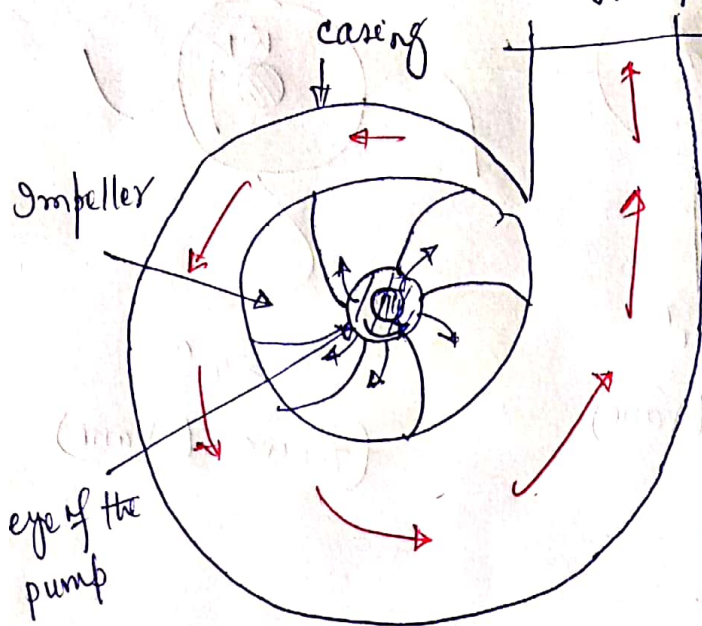 casing
Impeller
eye of the
pump